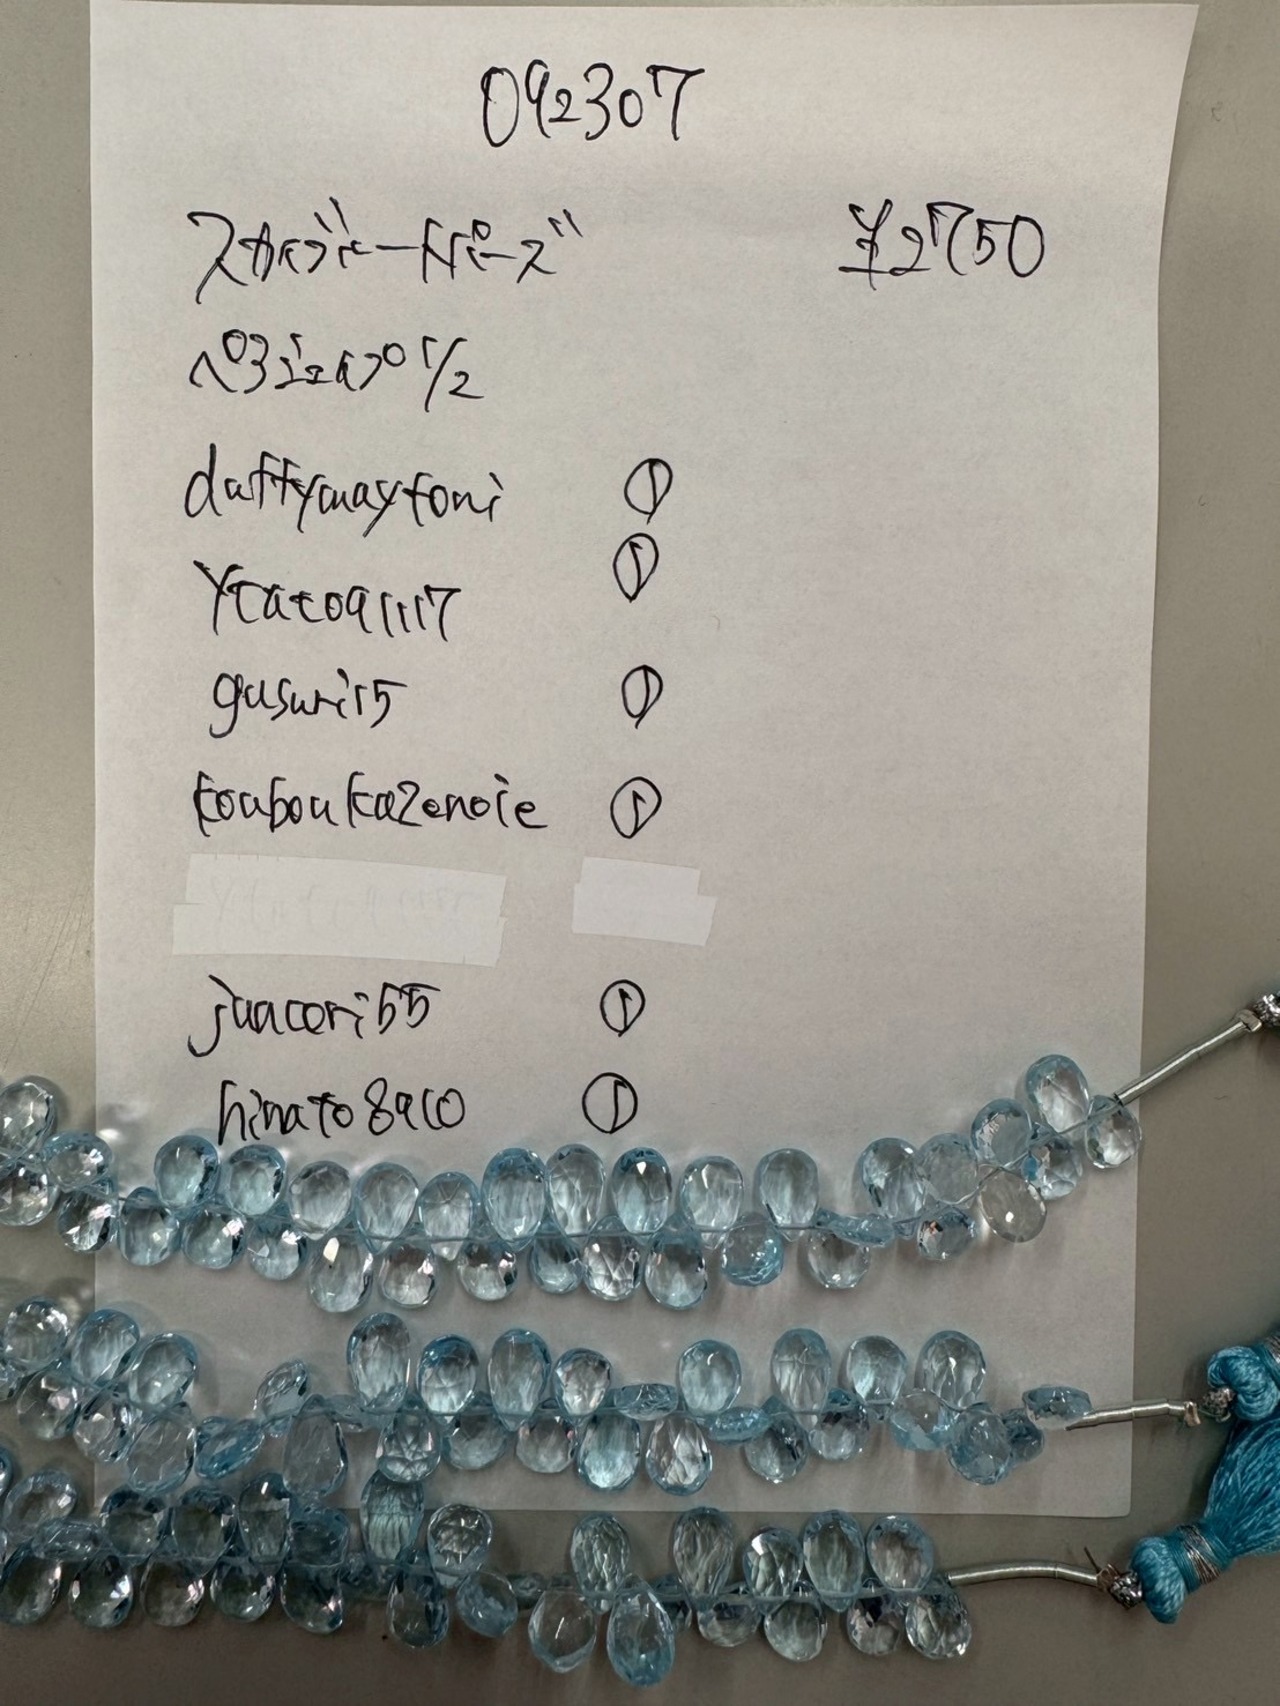 092307
スカイブルートパーズ ¥2750
ペアシェイプ 1/2
daffymaytoni ①
ytato91117 ①
gusuri15 ①
kouboukazenoie ①
juncori55 ①
hinato8910 ①